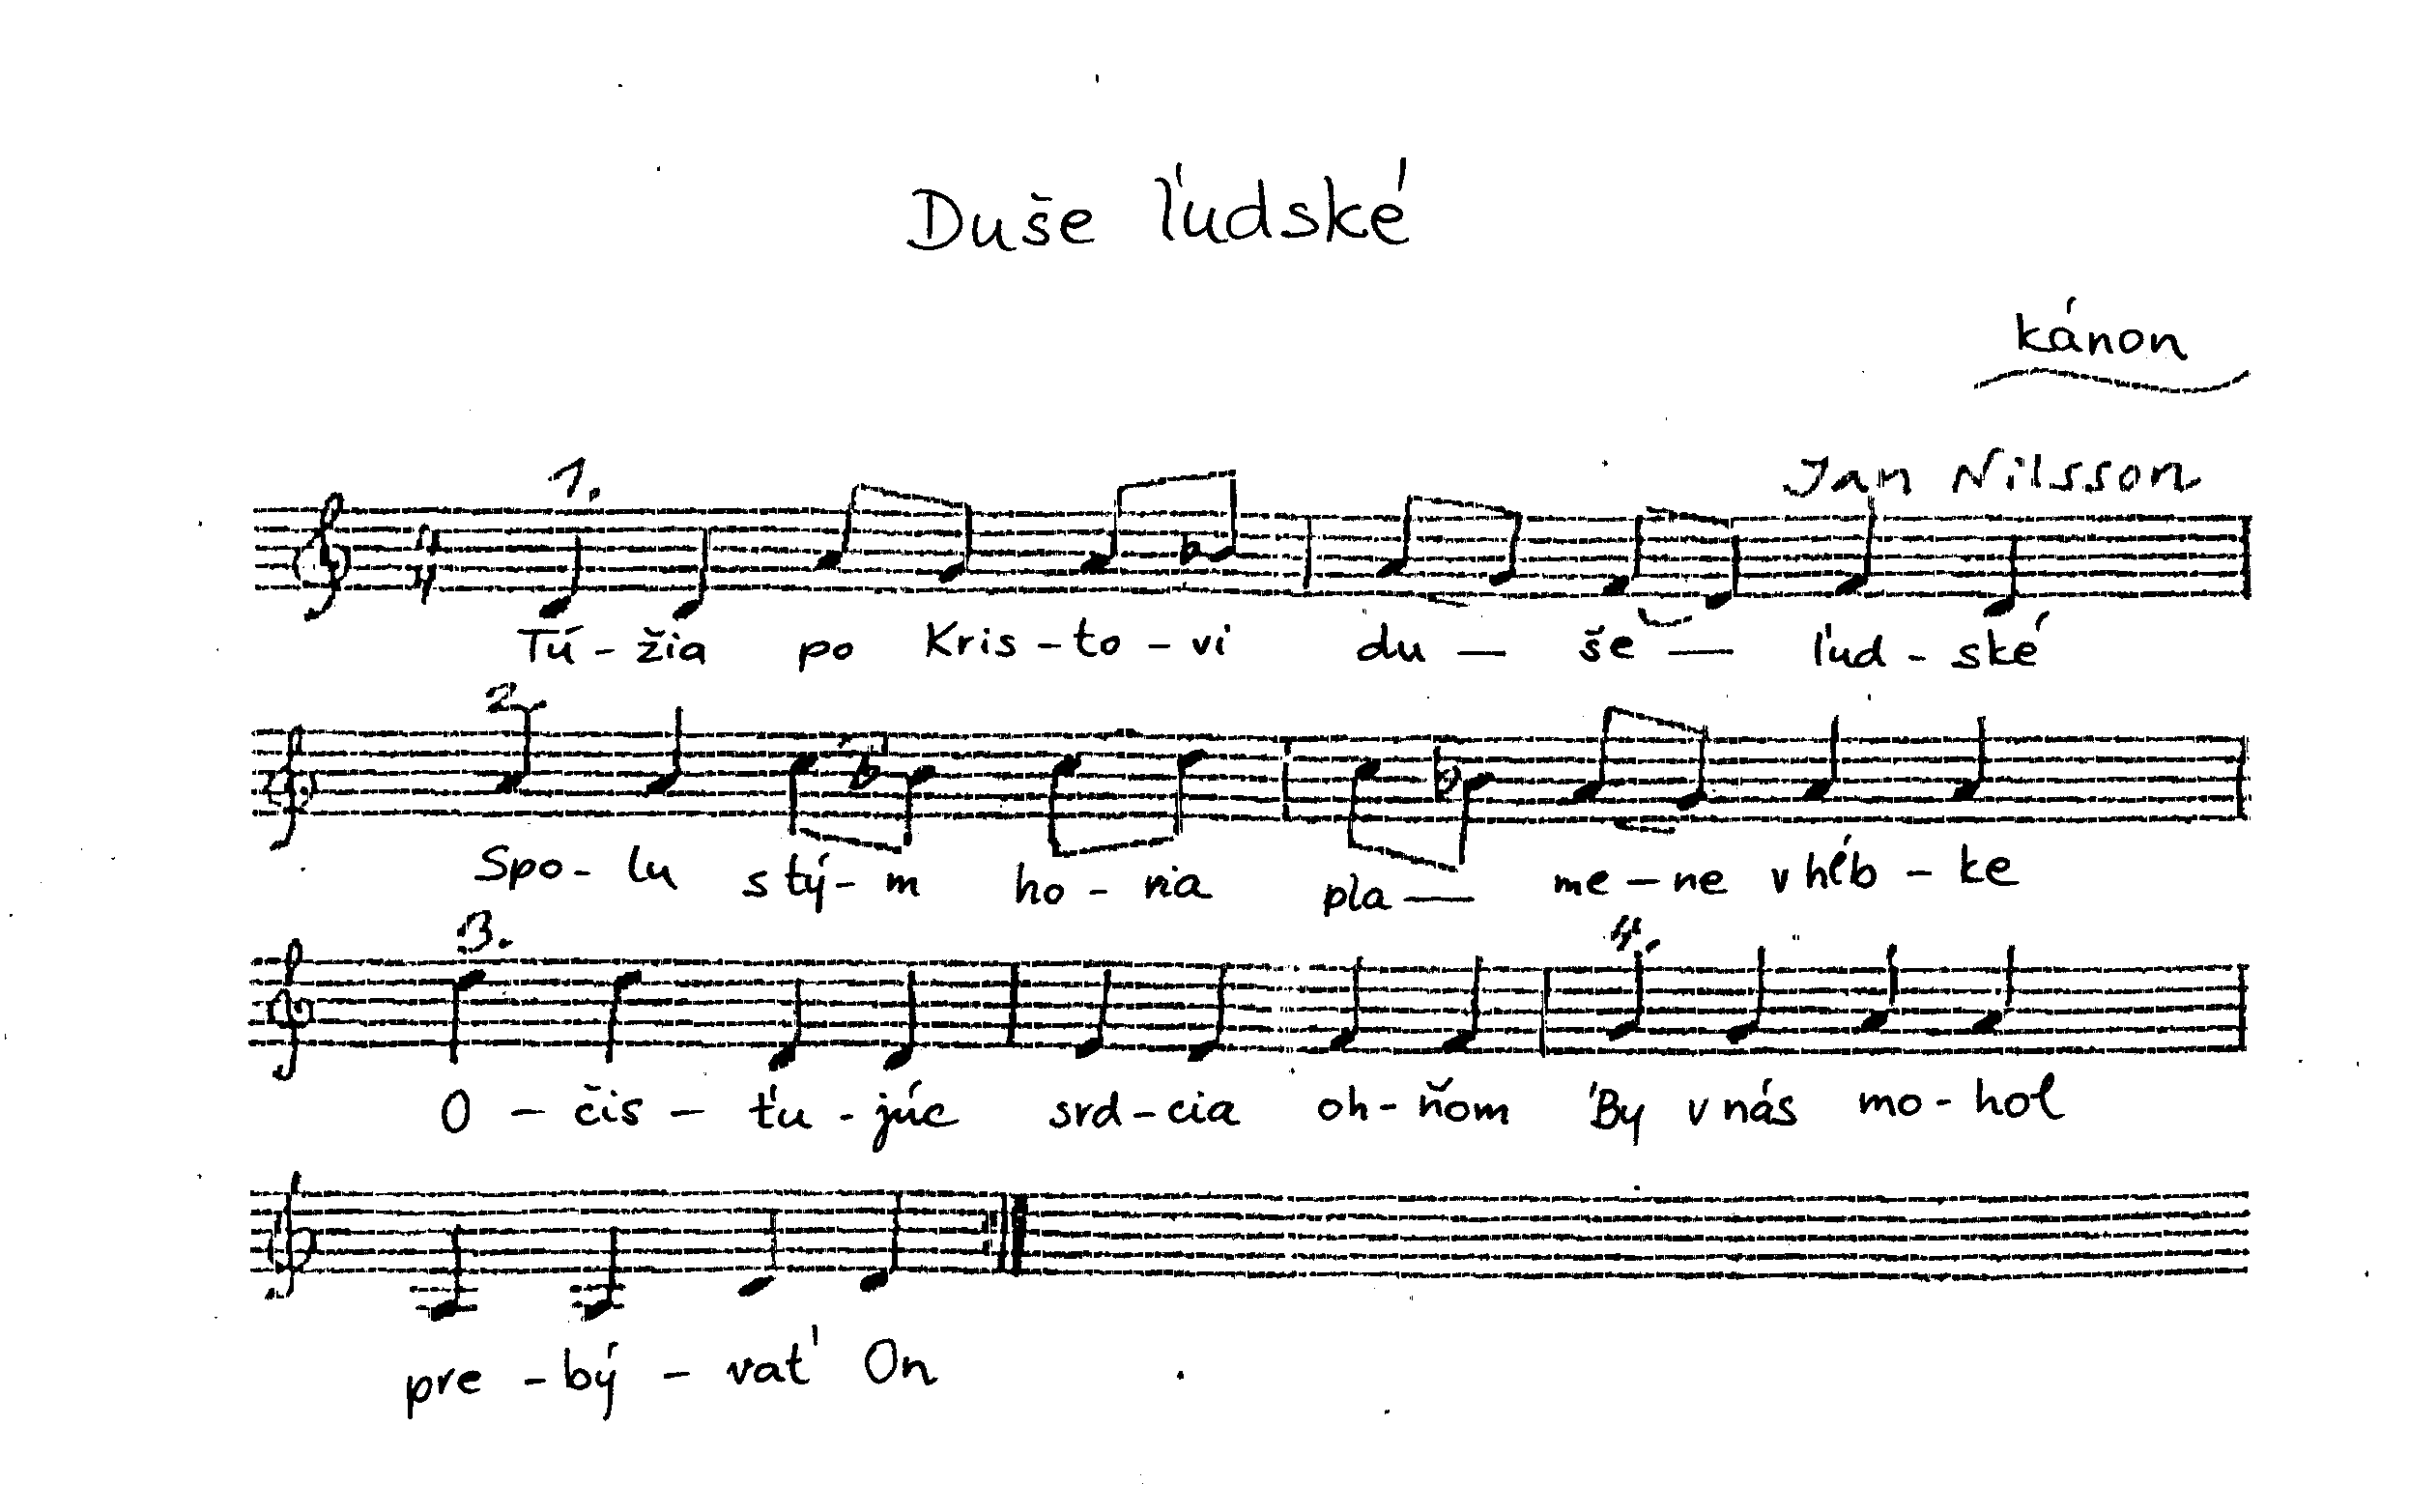 Duše ľudské
kánon
Jan Nilsson
1.
Tú - žia po Kris - to - vi du — še — ľud - ské
2.
Spo - lu s tý - m ho - ria pla — me - ne v hĺb - ke
3. 4.
O - čis - ťu - júc srd - cia oh - ňom 'By v nás mo - hol
pre - bý - vať On